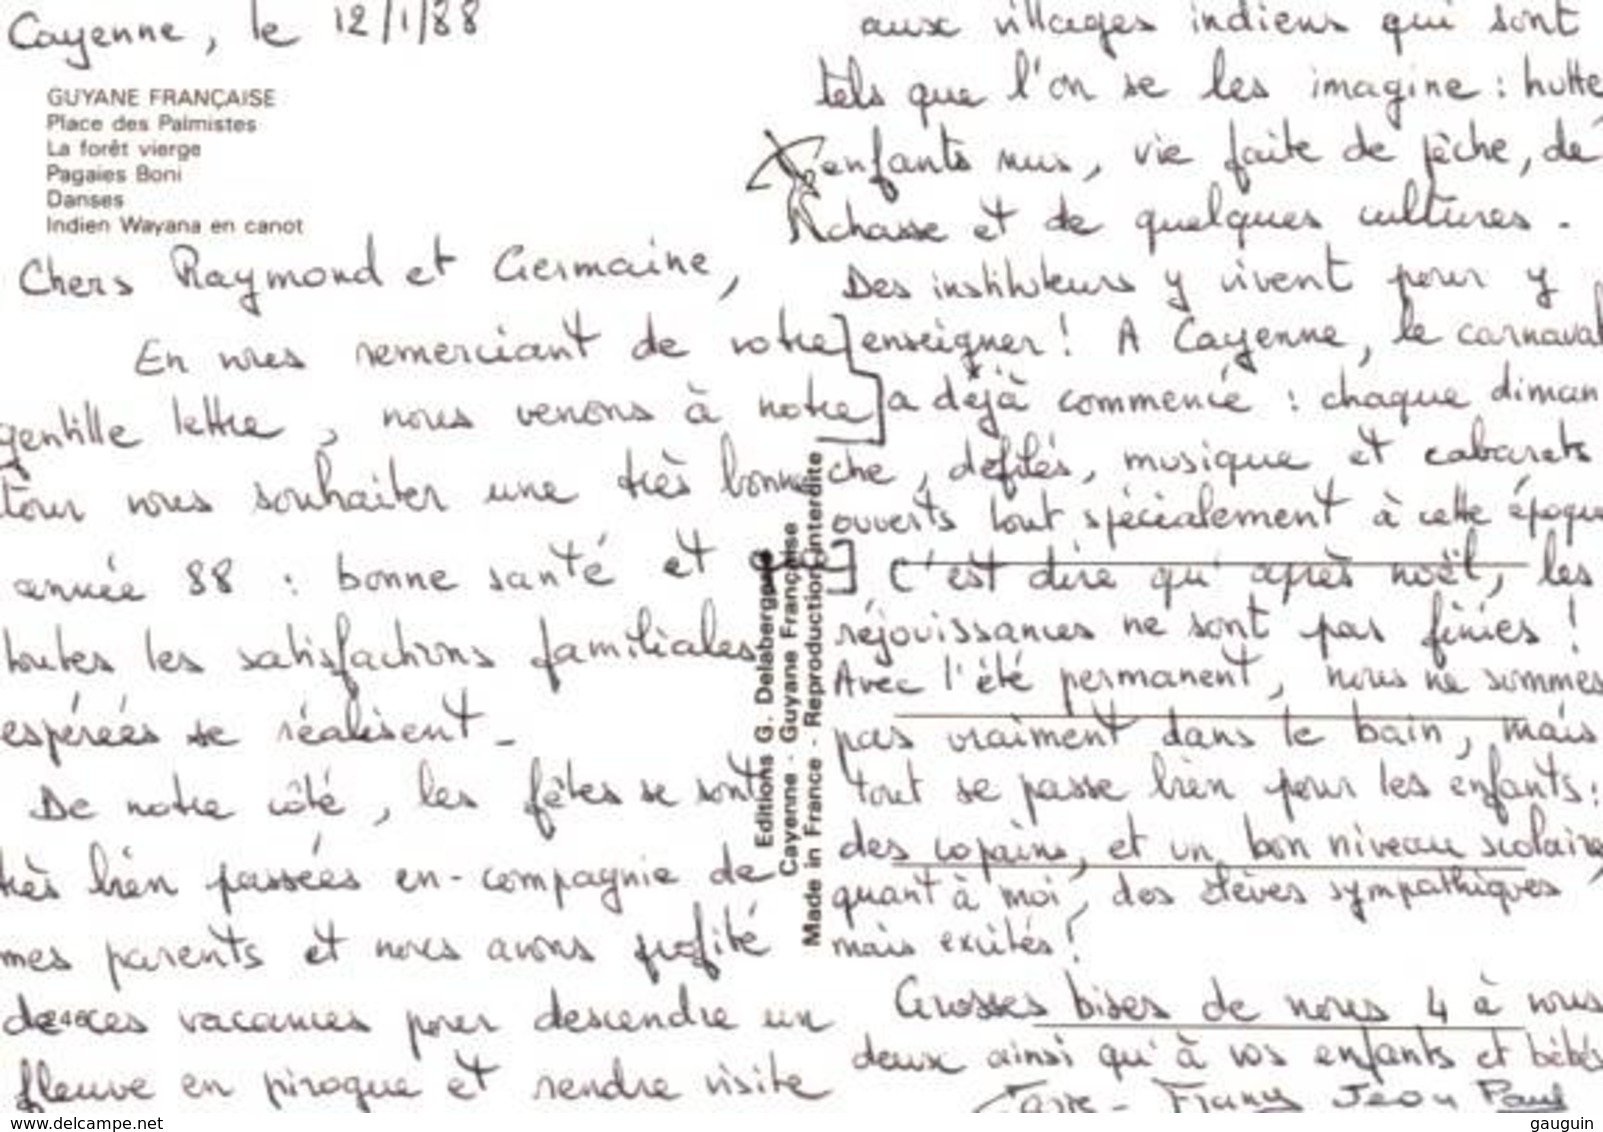 Cayenne, le 12/1/88
GUYANE FRANÇAISE
Place des Palmistes
La forêt vierge
Pagaies Boni
Danses
Indien Wayana en canot
Chers Raymond et Germaine,
En vous remerciant de votre
gentille lettre, nous venons à notre
tour vous souhaiter une très bonne
année 88 : bonne santé et que
toutes les satisfactions familiales
espérées se réalisent -
De notre côté, les fêtes se sont
très bien passées en-compagnie de
mes parents et nous avons profité
de ces vacances pour descendre un
fleuve en pirogue et rendre visite
Editions G. Delabergerie
Cayenne - Guyane Française
Made in France - Reproduction interdite
aux villages indiens qui sont
tels que l'on se les imagine : hutte
enfants nus, vie faite de pêche, de
chasse et de quelques cultures.
Des instituteurs y vivent pour y
enseigner ! A Cayenne, le carnaval
a déjà commencé : chaque diman
che, défilés, musique et cabarets
ouverts tout spécialement à cette époque
C'est dire qu'après noël, les
réjouissances ne sont pas finies !
Avec l'été permanent, nous ne sommes
pas vraiment dans le bain, mais
tout se passe bien pour les enfants :
des copains, et un bon niveau scolaire,
quant à moi, des élèves sympathiques
mais excités !
Grosses bises de nous 4 à vous
deux ainsi qu'à vos enfants et bébés
Jean Paul
delcampe.net
gauguin